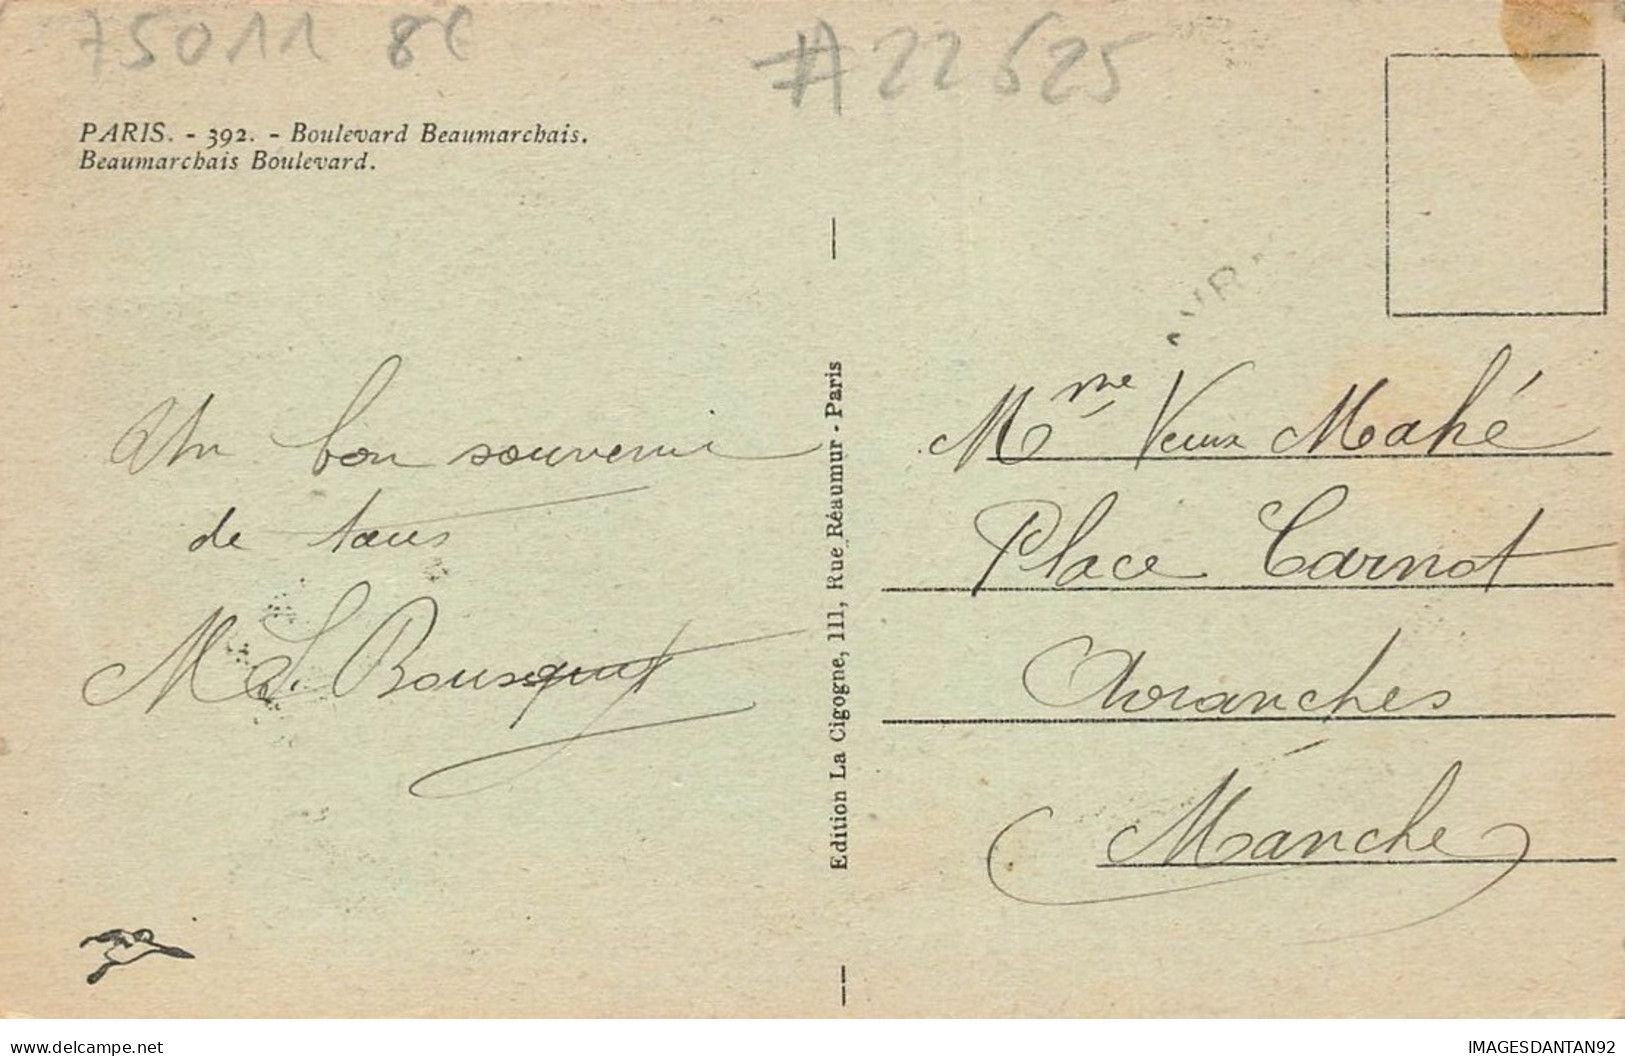 75011 8€
#A22625
PARIS. - 392. - Boulevard Beaumarchais.
Beaumarchais Boulevard.
Un bon souvenir
de tous
Bousquet
Edition La Cigogne, 111, Rue Réaumur - Paris
Mme Veuve Mahé
Place Carnot
Avranches
Manche
delcampe.net
IMAGESDANTAN92